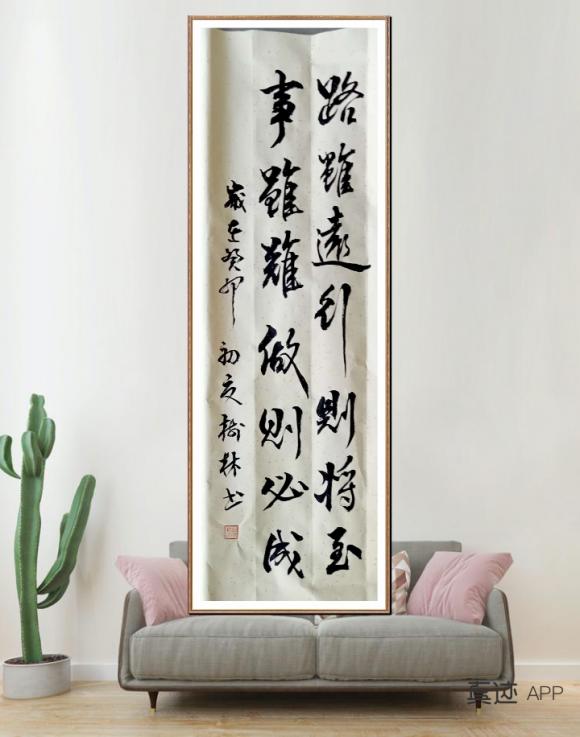 路雖遠行則将至
事雖難做則必成
歲在癸卯初夏樹林书
迹 APP